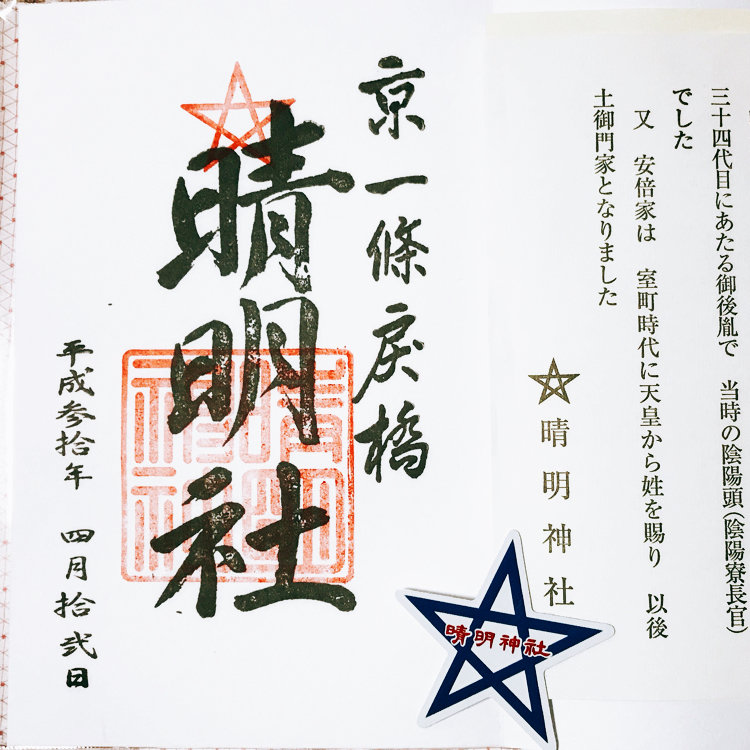 三十四代目にあたる御後胤で　当時の陰陽頭(陰陽寮長官)
でした
又　安倍家は　室町時代に天皇から姓を賜り　以後
土御門家となりました
晴明神社
晴明神社
京一條戻橋
晴明社
平成参拾年　四月拾弐日